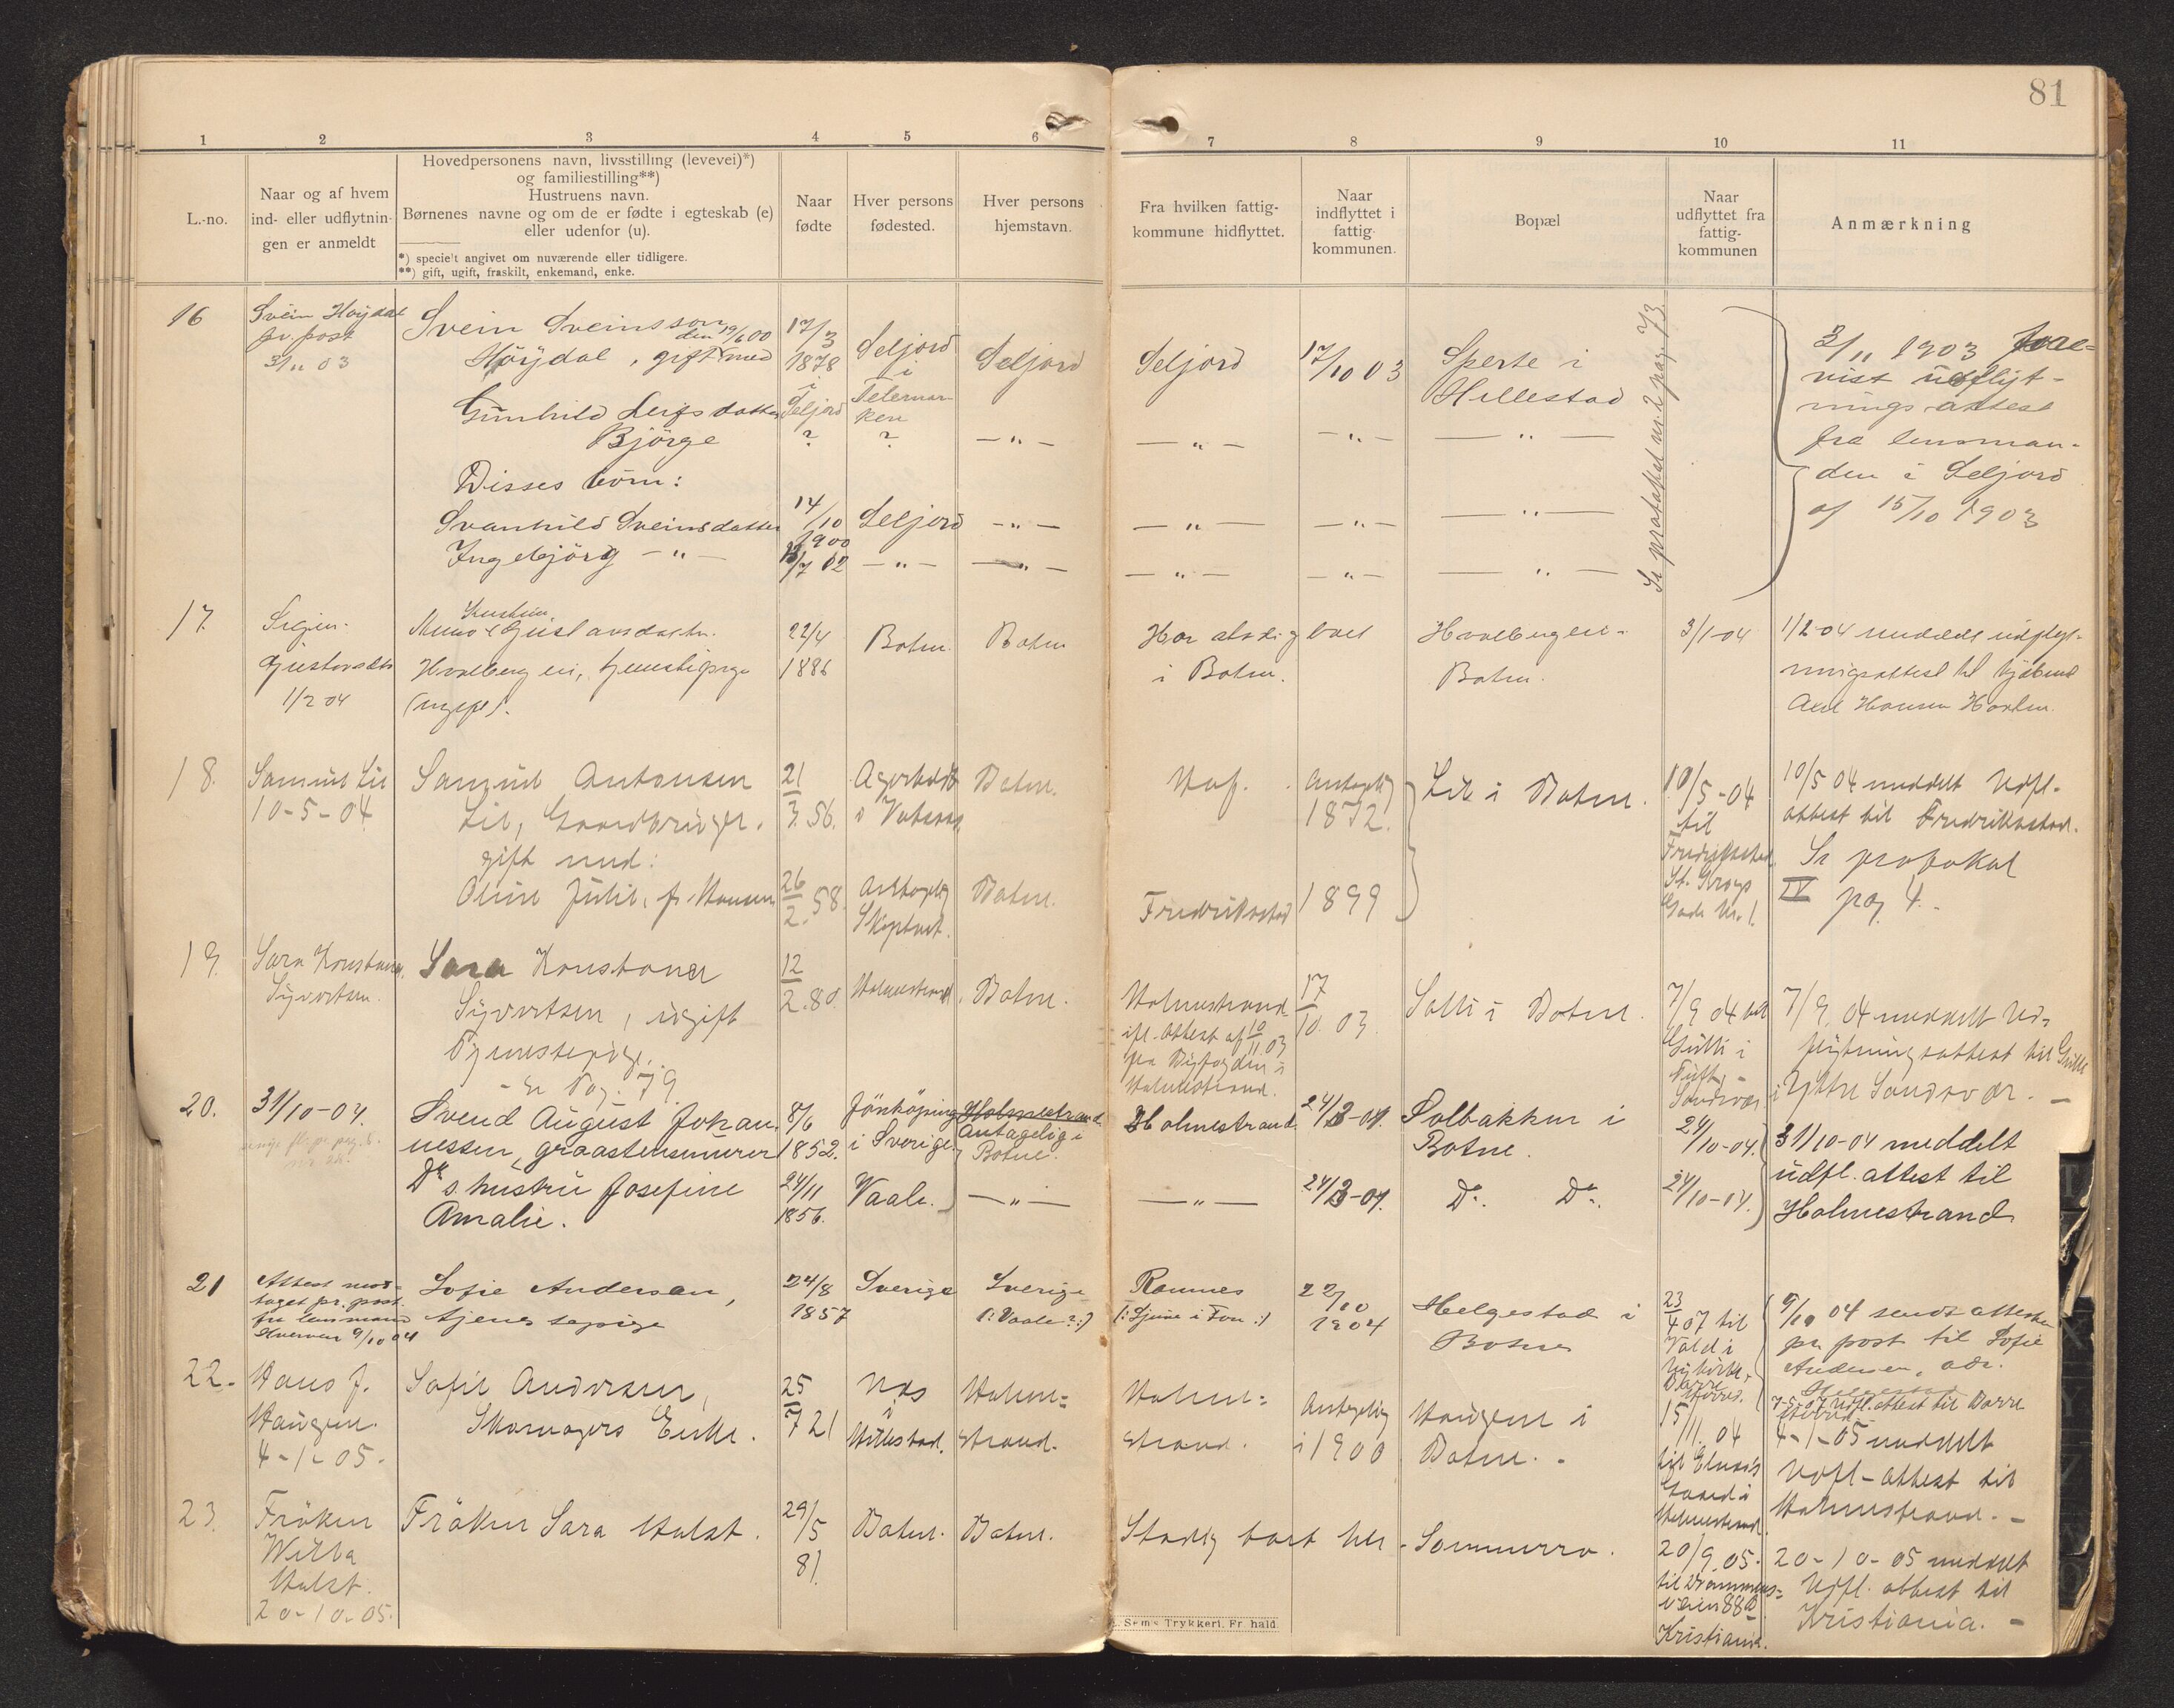 81
1 2 3 4 5 6 7 8 9 10 11
L.-no.
Naar og af hvem
ind- eller udflytnin-
gen er anmeldt
Hovedpersonens navn, livsstilling (levevei)*)
og familiestilling**)
Hustruens navn.
Børnenes navne og om de er fødte i egteskab (e)
eller udenfor (u).
*) specielt angivet om nuværende eller tidligere.
**) gift, ugift, fraskilt, enkemand, enke.
Naar
fødte
Hver persons
fødested.
Hver persons
hjemstavn.
Fra hvilken fattig-
kommune hidflyttet.
Naar
indflyttet i
fattig-
kommunen.
Bopæl
Naar
udflyttet fra
fattig-
kommunen
Anmærkning
16
Svein Høydal
pr. post
3/11 03
Svein Sveinsson
den 19/6 00
Höydal, gift med
Gunhild Leifsdatter
Björge
Disses börn:
Svanhild Sveinsdatter
Ingebjörg — " —
17/3
1878
i
Seljord
?
14/10
1900
13/7 02
Seljord
i
Telemar-
ken
?
Seljord
— " —
Seljord
— " —
— " —
— " —
Seljord
— " —
— " —
— " —
17/10 03
— " —
— " —
— " —
Sperte i
Hillestad
— " —
— " —
— " —
Se protokol nr. 2 pag. 73
3/11 1903 fore-
vist udflyt-
nings attest
fra lensman-
den i Seljord
af 15/10 1903
17.
Gustavsdtr
1/2 04
Gustavsdatter
Hvalbergeie, tjenestepige
(ugift).
22/4
1886
Botne
Botne
Har altid boet
i Botne.
Botne.
3/1-04
1/2-04 meddelt udflyt-
ningsattest til
18.
Samuel Lie
10-5-04
Samuel Antonsen
Lie, Gaardbruger.
gift med:
Oline Julie, f. Hansen
21/3 56.
26/2. 58.
Antagelig
Botne.
Botne.
Hof.
Fredrikstad
Antagelig
1872.
1899
Lie i Botne.
10/5-04
til
Fredrikstad
Gade Nr. 1.
10/5 04 meddelt Udfl.-
attest til Fredrikstad.
Se protokol
IV pag. 4.
19.
Sara Konstance
Syvertsen.
Sara Konstance
Syvertsen, ugift
Tjenestepige.
Pag. 79.
12/2. 80.
Holmestrand.
Botne.
Holmestrand
ifl. Attest af 10/11 03
fra Byfogden i
Holmestrand.
17/10. 03.
Solli i Botne.
7/9 04 til
Gulli i
Sandsvær
7/9. 04 meddelt Ud-
flytningsattest til Gulli
i Ytre Sandsvær. —
20.
31/10-04.
Svend August Johan-
nessen, graastensmurer
Do s. hustru Josefine
Amalie.
8/6
1852.
24/11
1856.
Jönköping
i Sverige.
Vaale.
Holmestrand
Antagelig i
Botne.
— " —
Holmestrand
— " —
24/3-04.
24/3-04.
Solbakken i
Botne.
Do. Do.
24/10-04.
24/10-04.
31/10-04 meddelt
udfl. attest til
Holmestrand
21
Attest mod-
taget pr. post.
fra lensmand
9/10 04
Sofie Andersen,
tjenestepige
24/8
1857
Sverige
Sverige
(: Vaale ?:)
Ramnes
22/10
1904
Helgestad i
Botne
23/4 07 til
9/10 04 sendt attesten
pr. post til Sofie
Andersen, adr.
Helgestad
7-5-07 Udfl. attest til Borre
22.
Hans J.
Haugen.
4-1-05.
Sofie Andersen,
Skomagers Enke.
25/7 21
i
Hillestad.
Holme-
strand.
Holme-
strand.
Antagelig
i 1900
Haugen i
Botne.
15/11. 04
Gaard i
Holmestrand.
4-1-05 meddelt
Udfl.-attest til
Holmestrand. —
23.
Fröken
Holst.
20-10-05.
Fröken Sara Holst.
29/5
81.
Botne.
Botne.
Stadig boet her.
Sommerro.
20/9. 05.
til Drammens-
veien 88
Kristiania.
20-10-05 meddelt
Udfl. attest til
Kristiania. —
Sem's Trykkeri, Fr.hald.